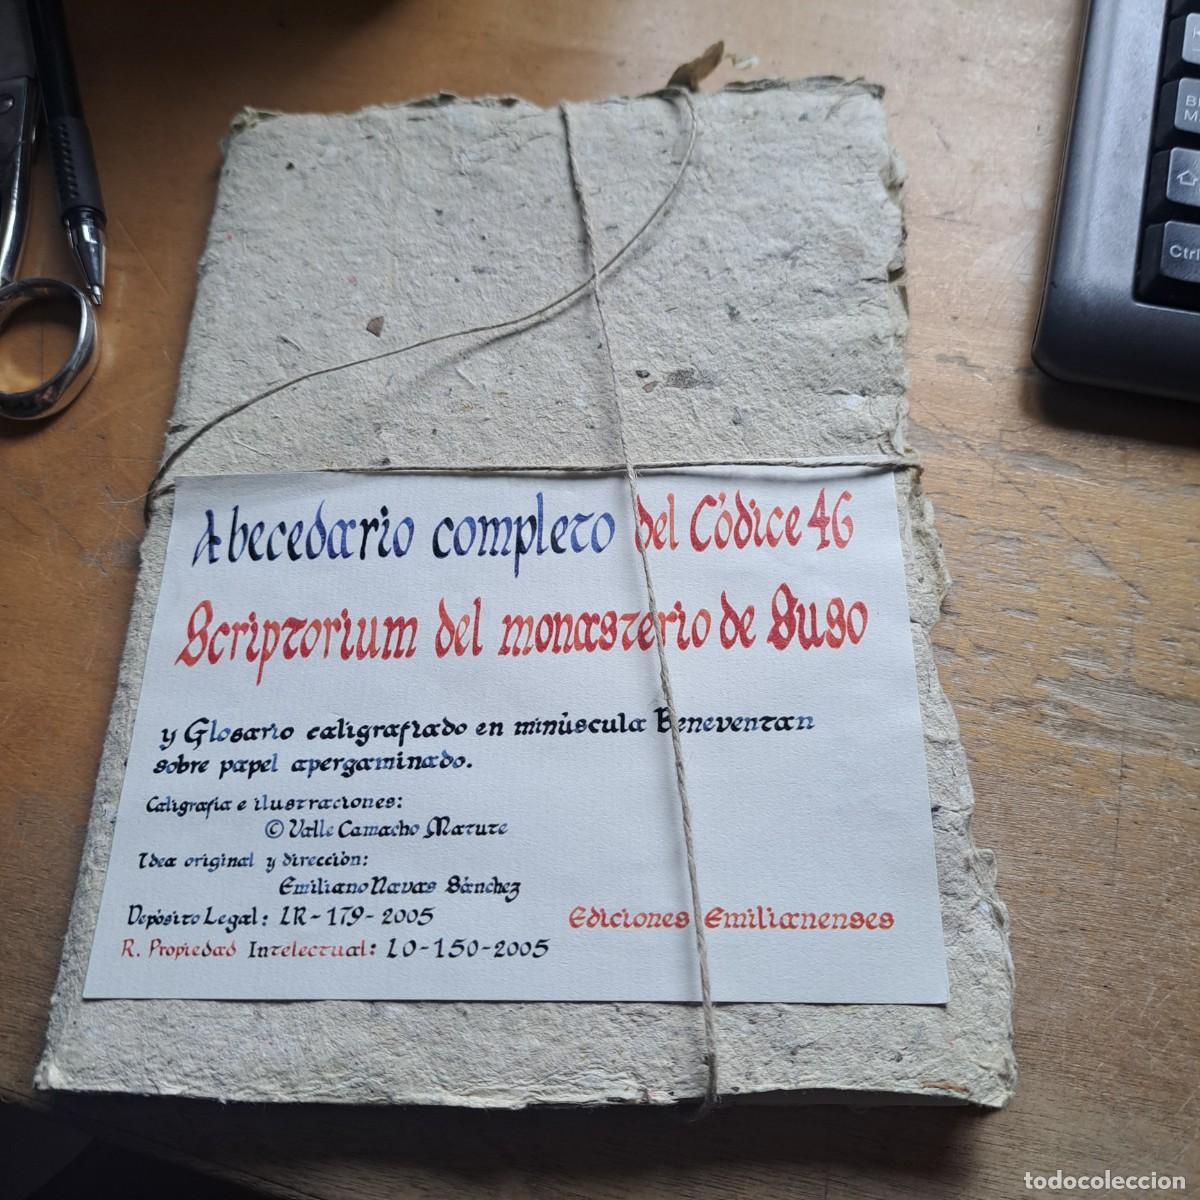 Abecedario completo del Códice 46
Scriptorium del monasterio de Suso
y Glosario caligrafiado en minúscula Beneventan
sobre papel apergaminado.
Caligrafia e ilustraciones:
© Valle Camacho Matute
Idea original y dirección:
Emiliano Navas Sánchez
Depósito Legal: LR-179-2005
Ediciones Emilianenses
R. Propiedad Intelectual: LO-150-2005
Ctrl
todocoleccion